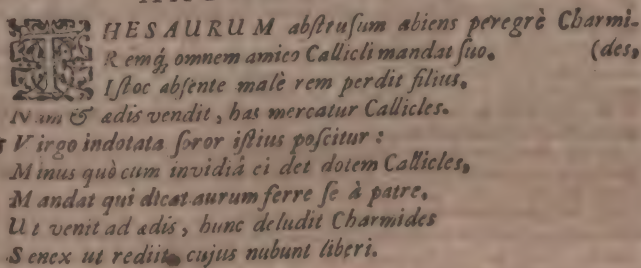 THESAURUM abſtruſum abiens peregrè Charmi-
Remq́; omnem amico Callicli mandat ſuo. (des,
Iſtoc abſente malè rem perdit filius.
Nam & ædis vendit, has mercatur Callicles.
Virgo indotata ſoror iſtius poſcitur:
Minus quò cum invidiâ ei det dotem Callicles,
Mandat qui dicat aurum ferre ſe à patre.
Ut venit ad ædis, hunc deludit Charmides
Senex ut rediit, cujus nubunt liberi.